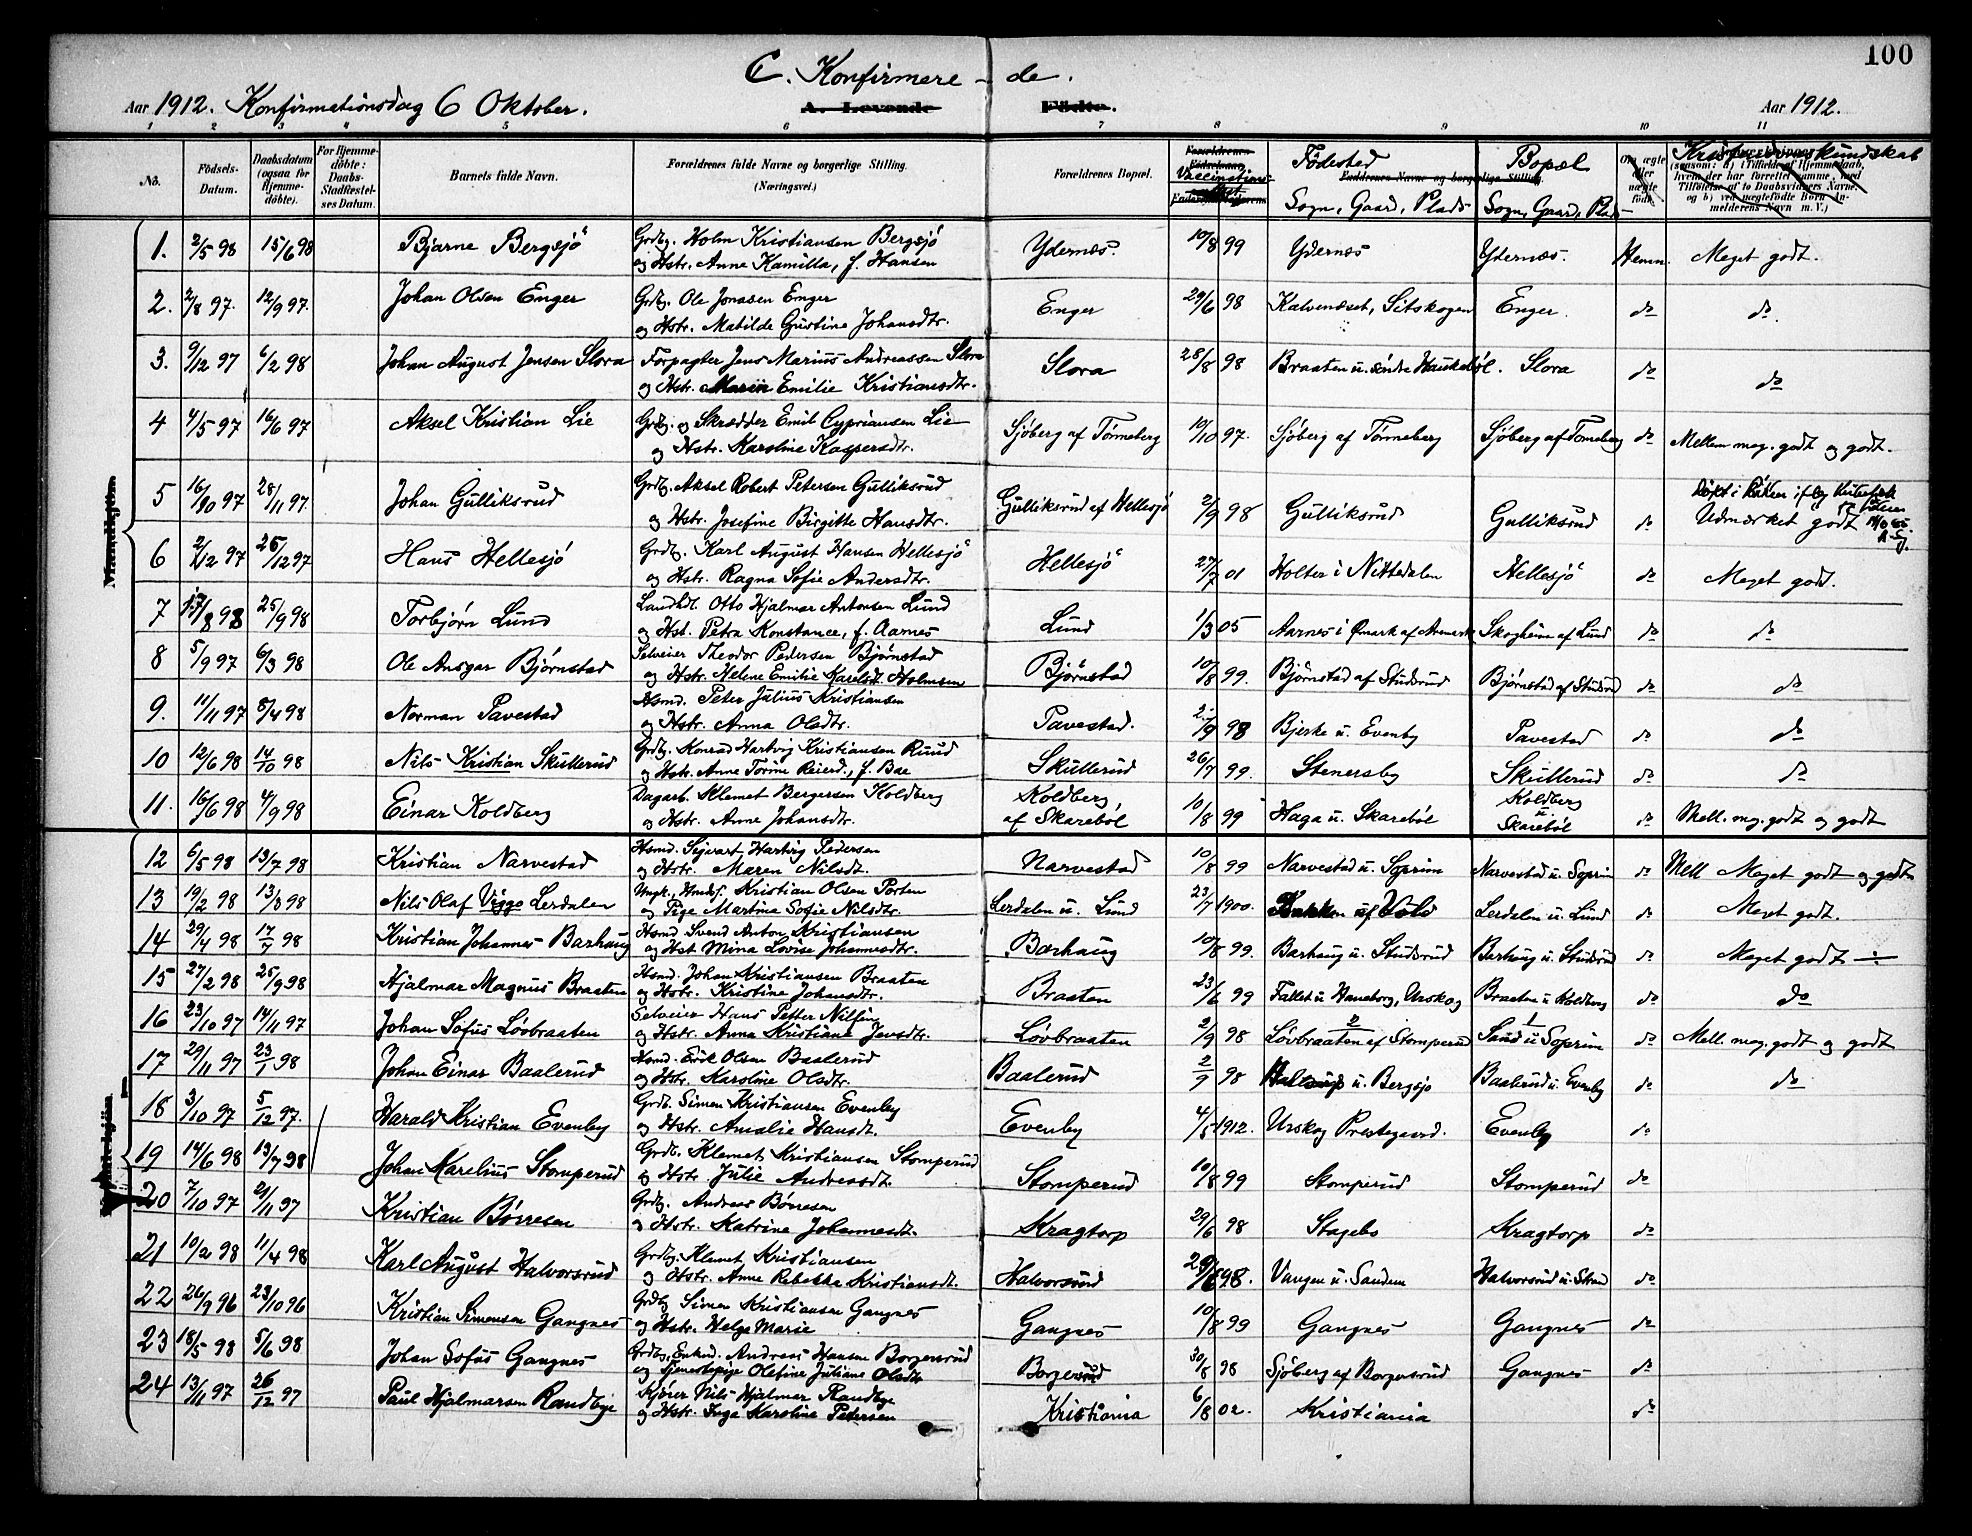 100
C. Konfirmere - de.
Aar 1912. Konfirmationsdag 6 Oktober. A. Levende Födte. Aar 1912.
1 2 3 4 5 6 7 8 9 10 11
No. Födsels-Datum. Daabsdatum (ogsaa for Hjemme-döbte). For Hjemme-döbte: Daabs-Stadfæstel-ses Datum. Barnets fulde Navn. Forældrenes fulde Navne og borgerlige Stilling. (Næringsvei.) Forældrenes Bopæl. Vaccinations- Födested Sogn, Gaard, Plads Bopæl Sogn, Gaard, Plads Om ægte eller uægte født. Kristendomskundskab
Mandkjön
1. 2/5 98 15/6 98 Bjarne Bergsjö Grdbg. Holm Kristiansen Bergsjö Ydernæs. 10/8 99 Ydernæs Ydernæs. Hemn. Meget godt.
og Hstr. Anne Kamilla, f. Hansen
2. 2/8 97. 12/9 97. Johan Olsen Enger Grdbg. Ole Jonasen Enger Enger 29/6 98 Kalvenæset, Sitskogen Enger. do do.
og Hstr. Matilde Gustine Johansdtr.
3. 9/12 97 6/2 98 Johan August Jensen Slora Forpagter Jens Marius Andreassen Slora Slora 28/8 98 Braaten u. søndre Haukebøl. Slora do do
og Hstr. Marin Emilie Kristiansdtr.
4 4/5 97 16/6 97 Aksel Kristian Lie Grdbg. og Skrædder Emil Cypriansen Lie Sjöberg af Törneberg 10/10 97. Sjöberg af Törneberg Sjöberg af Törneberg do Mellem meg. godt og godt.
og Hstr. Karoline Kaspersdtr.
5 16/10 97 28/11 97 Johan Gulliksrud Grdbg. Aksel Robert Petersen Gulliksrud Gulliksrud af Hellesjö 2/9 98 Gulliksrud Gulliksrud do Udmærket godt
og Hstr. Josefine Birgitte Hansdtr.
6 2/12 97 26/12 97 Hans Hellesjö Grdbg. Karl August Hansen Hellesjö Hellesjö 27/7 01 Holter i Nittedalen Hellesjö do Meget godt.
og Hstr. Ragna Sofie Andersdtr.
7 17/8 98 25/9 98 Torbjørn Lund Landhdl. Otto Hjalmar Antonsen Lund Lund 1/3 05 Aarnes i Ømark af Aremark Skogheim af Lund do do
og Hst. Petra Konstance, f. Aarnes
8 5/9 97 6/3 98 Ole Ansgar Bjørnstad Selveier Theodor Pedersen Bjørnstad Bjørnstad 10/8 99. Bjørnstad af Studsrud Bjørnstad af Studsrud do do
og Hstr. Helene Emilie Karelsdt. Holmsen
9. 11/11 97 8/4 98 Norman Pavestad Hsmd. Peter Julius Kristiansen Pavestad. 2/9 98 Bjerke u. Evenby Pavestad do do
og Hstr. Anna Olsdtr.
10 12/6 98 14/10 98 Nils Kristian Skullerud Grdbg. Konrad Hartvig Kristiansen Ruud Skullerud 26/7 99. Stenersby Skullerud do do
og Hstr. Anne Torine Reierd., f. Bae
11. 16/6 98 4/9 98 Einar Koldberg Dagarb. Klemet Bergersen Koldberg Koldberg, af Skarebøl 10/8 99 Haga u. Skarebøl Koldberg u. Skarebøl do Mell. meg. godt og godt
og Hstr. Anne Johansdtr.
12 6/5 98 13/7 98 Kristian Narvestad Hsmd. Sigvart Hartvig Pedersen Narvestad 10/8 99 Narvestad u. Soprim Narvestad u. Soprim do Mell Meget godt og godt
og Hstr. Maren Nilsdt.
13 19/2 98 13/3 98 Nils Olaf Viggo Lerdalen Ungk. Kristian Olsen Porten Lerdalen u. Lund 23/7 1900. Bakken af Vold Lerdalen u. Lund do Meget godt.
og Pige Martina Sofie Nilsdtr.
14 29/4 98 17/7 98 Kristian Johannes Barhaug Hsmd Svend Anton Kristiansen Barhaug 10/8 99. Barhaug u. Studsrud Barhaug u. Studsrud do Meget godt ÷
og Hst Mina Lovise Johannesdtr.
15 27/2 98 25/9 98 Hjalmar Magnus Braaten Hsmd. Johan Kristiansen Braaten Braaten 23/6 99 Fallet u Haneborg, Urskog Braaten u Koldberg do do
og Hstr. Kristine Johansdtr.
16 23/10 97 14/11 97 Johan Sofus Løvbraaten Selveier Hans Petter Nilsen Løvbraaten 2/9 98 Løvbraaten af Stomperud Sand u Soprim do Mell. meg. godt og godt
og Hstr. Anna Kristiane Jensdtr.
17 29/11 97 23/1 98 Johan Einar Baalerud Hsmd. Erik Olsen Baalerud Baalerud 2/9 98 u. Bergsjø Baalerud u. Evenby do do
og Hstr. Karoline Olsdtr.
18 3/10 97 5/12 97. Harald Kristian Evenby Grdb. Simen Kristiansen Evenby Evenby 4/5 1912. Urskog Prestegaard. Evenby do
og Hstr. Amalie Hansdt.
19 14/6 98 13/7 98 Johan Marelius Stomperud Grdb. Klemet Kristiansen Stomperud Stomperud 10/8 99 Stomperud Stomperud do
og Hstr. Julie Andreasdt.
20 7/10 97 21/11 97 Kristian Børresen Grdb. Andreas Børresen Kragtorp 29/6 98 Stagebo Kragtorp do
og Hstr. Katrine Johannesdt.
21 10/2 98 11/4 98 Karl August Halvorsrud Grdbg. Klemet Kristiansen Halvorsrud 29/6 98. Vangen u. Sandem Halvorsrud u. Strand do
og Hstr. Anne Rebekka Kristiansdt.
22 26/9 96 23/10 96 Kristian Simensen Gangnes Grdbg Simen Kristiansen Gangnes Gangnes 10/8 99 Gangnes Gangnes do
og Hstr. Helge Marie
23 18/5 98 5/6 98 Johan Sofus Gangnes Grdbg, Enkmd. Andreas Hansen Borgersrud Borgersrud 30/8 98 Sjöberg af Borgersrud Gangnes do
og Tjenestepige Olefine Juliane Olsdtr
24 13/11 97 26/12 97 Paul Hjalmarsen Randbye Kjører Nils Hjalmar Randbye Kristiania 6/8 02. Kristiania do
og Hstr. Inga Karoline Petersen